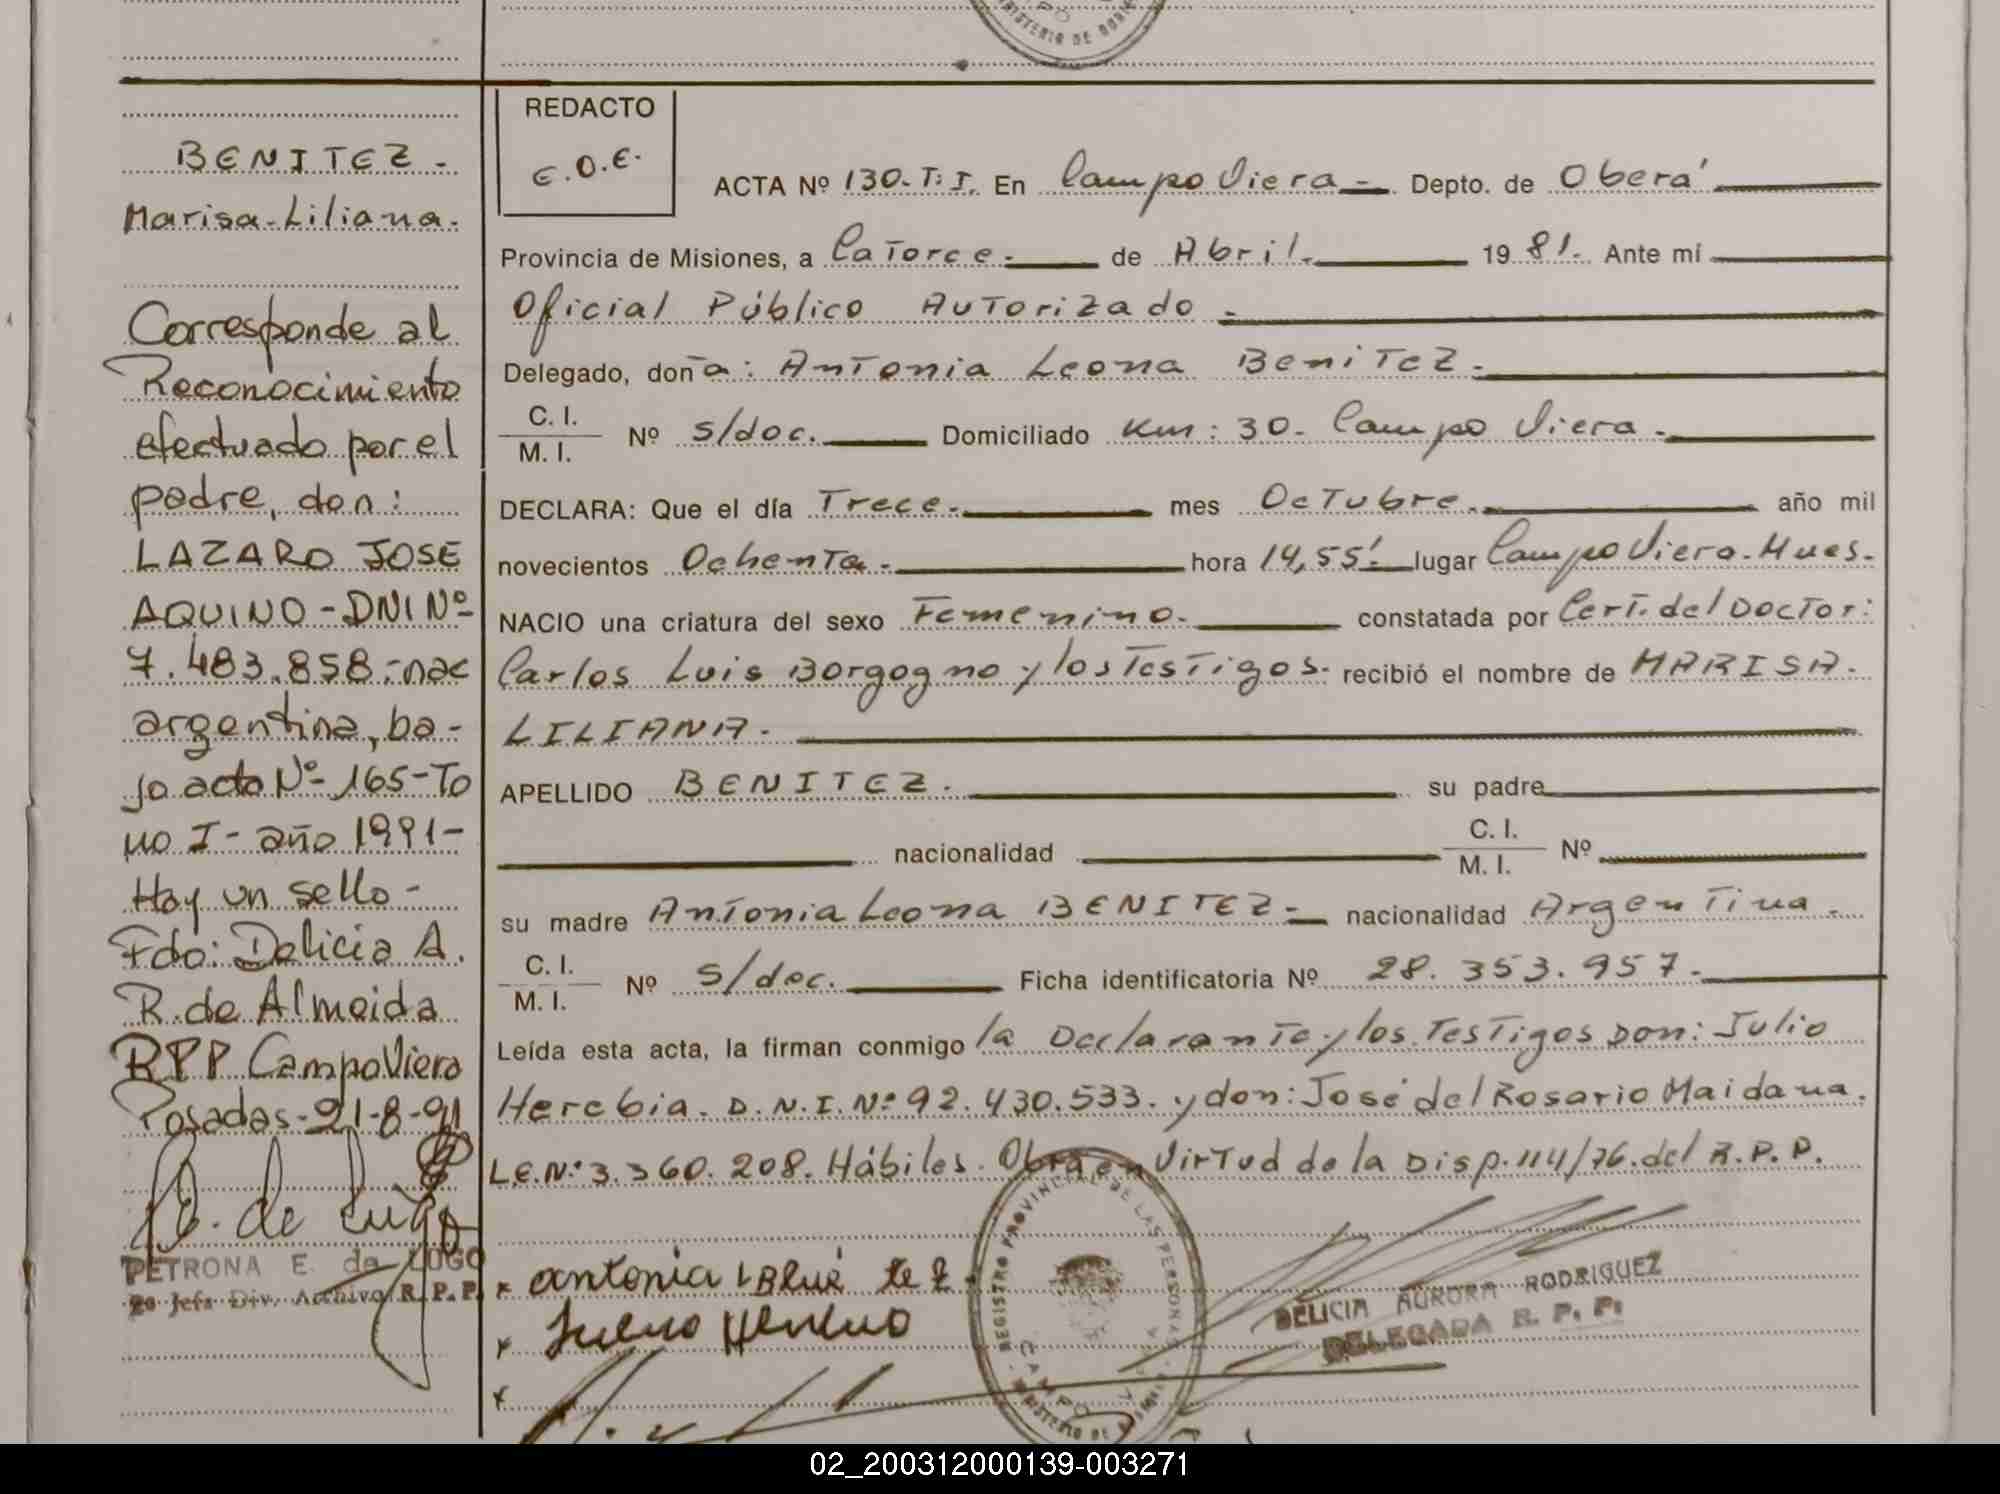 BENITEZ.
Marisa-Liliana.
Corresponde al
Reconocimiento
efectuado por el
padre, don:
LAZARO JOSE
AQUINO-DNI Nº
7.483.858.-nac
argentina, ba-
jo acta Nº 165-To
mo I- año 1991-
Hay un sello-
Fdo: Delicia A.
R. de Almeida
RPP Campo Viera
Posadas-21-8-91
PETRONA E. de LUGO
2º Jefe Div. Archivo R. P. P.
REDACTO
E.O.E.
ACTA Nº 130-T:I. En Campo Viera Depto. de Oberá
Provincia de Misiones, a Catorce.- de Abril. 1981. Ante mí
Oficial Público Autorizado
Delegado, doña: Antonia Leona BeniTez.
C. I.
M. I. Nº s/doc. Domiciliado Km: 30- Campo Viera.
DECLARA: Que el día Trece. mes Octubre. año mil
novecientos Ochenta. hora 14,55! lugar Campo Viera-Mnes.
NACIO una criatura del sexo Femenino. constatada por Cert. del Doctor:
Carlos Luis Borgogno y los Testigos. recibió el nombre de MARISA.
LILIANA.
APELLIDO BENITEZ. su padre
nacionalidad C. I.
M. I. Nº
su madre Antonia Leona BENITEZ- nacionalidad Argentina.
C. I.
M. I. Nº s/doc. Ficha identificatoria Nº 28.353.957.
Leída esta acta, la firman conmigo la Declarante y los Testigos Don: Julio
Herebia. D.N.I.Nº 92.430.533. y don: José del Rosario Maidana.
L.E.Nº:3.360.208. Hábiles. Obra en Virtud de la Disp. 114/76. del R.P.P.
REGISTRO PROVINCIAL DE LAS PERSONAS
CAMPO
DELICIA AURORA RODRIGUEZ
DELEGADA R. P. P.
02_200312000139-003271